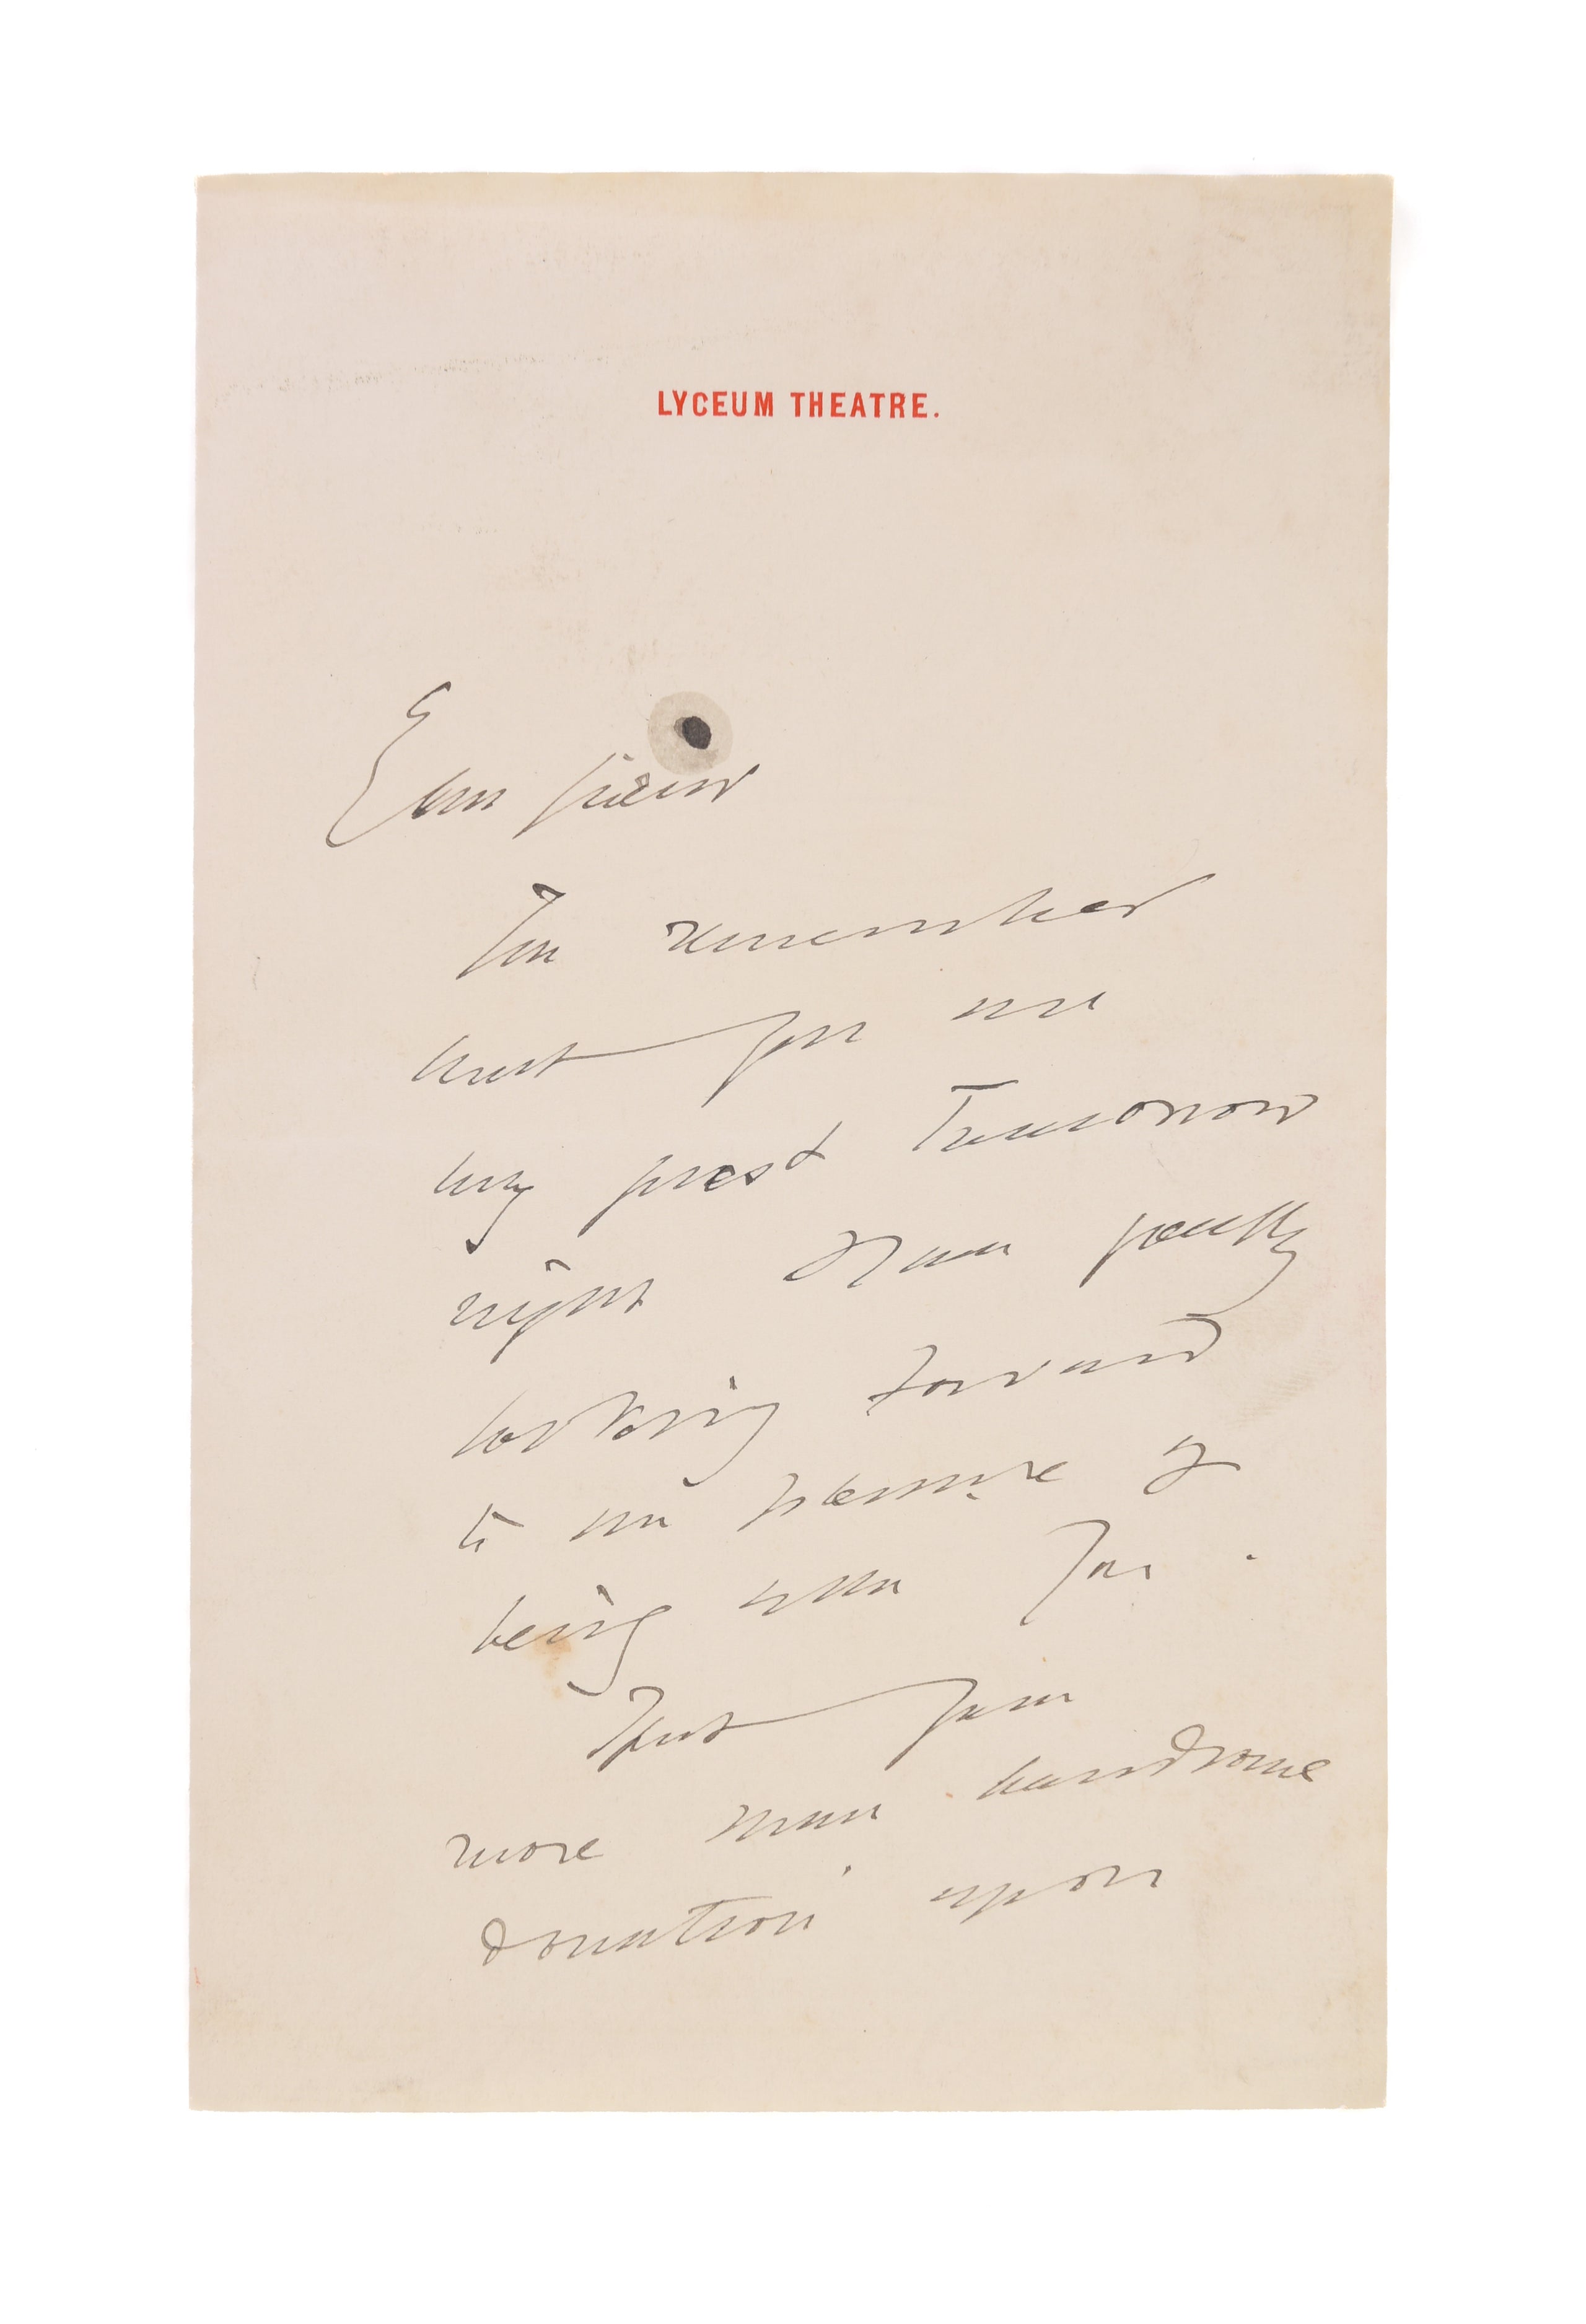 LYCEUM THEATRE.
Dear friend
You remember
that you are
my guest Tomorrow
night & I am greatly
looking forward
to the pleasure of
being with you.
That your
more than handsome
donation upon